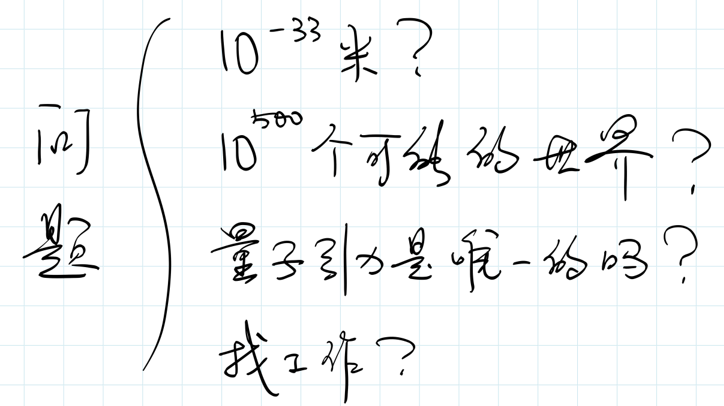 问题
10^-33 米?
10^500 个可能的世界?
量子引力是唯一的吗?
找工作?